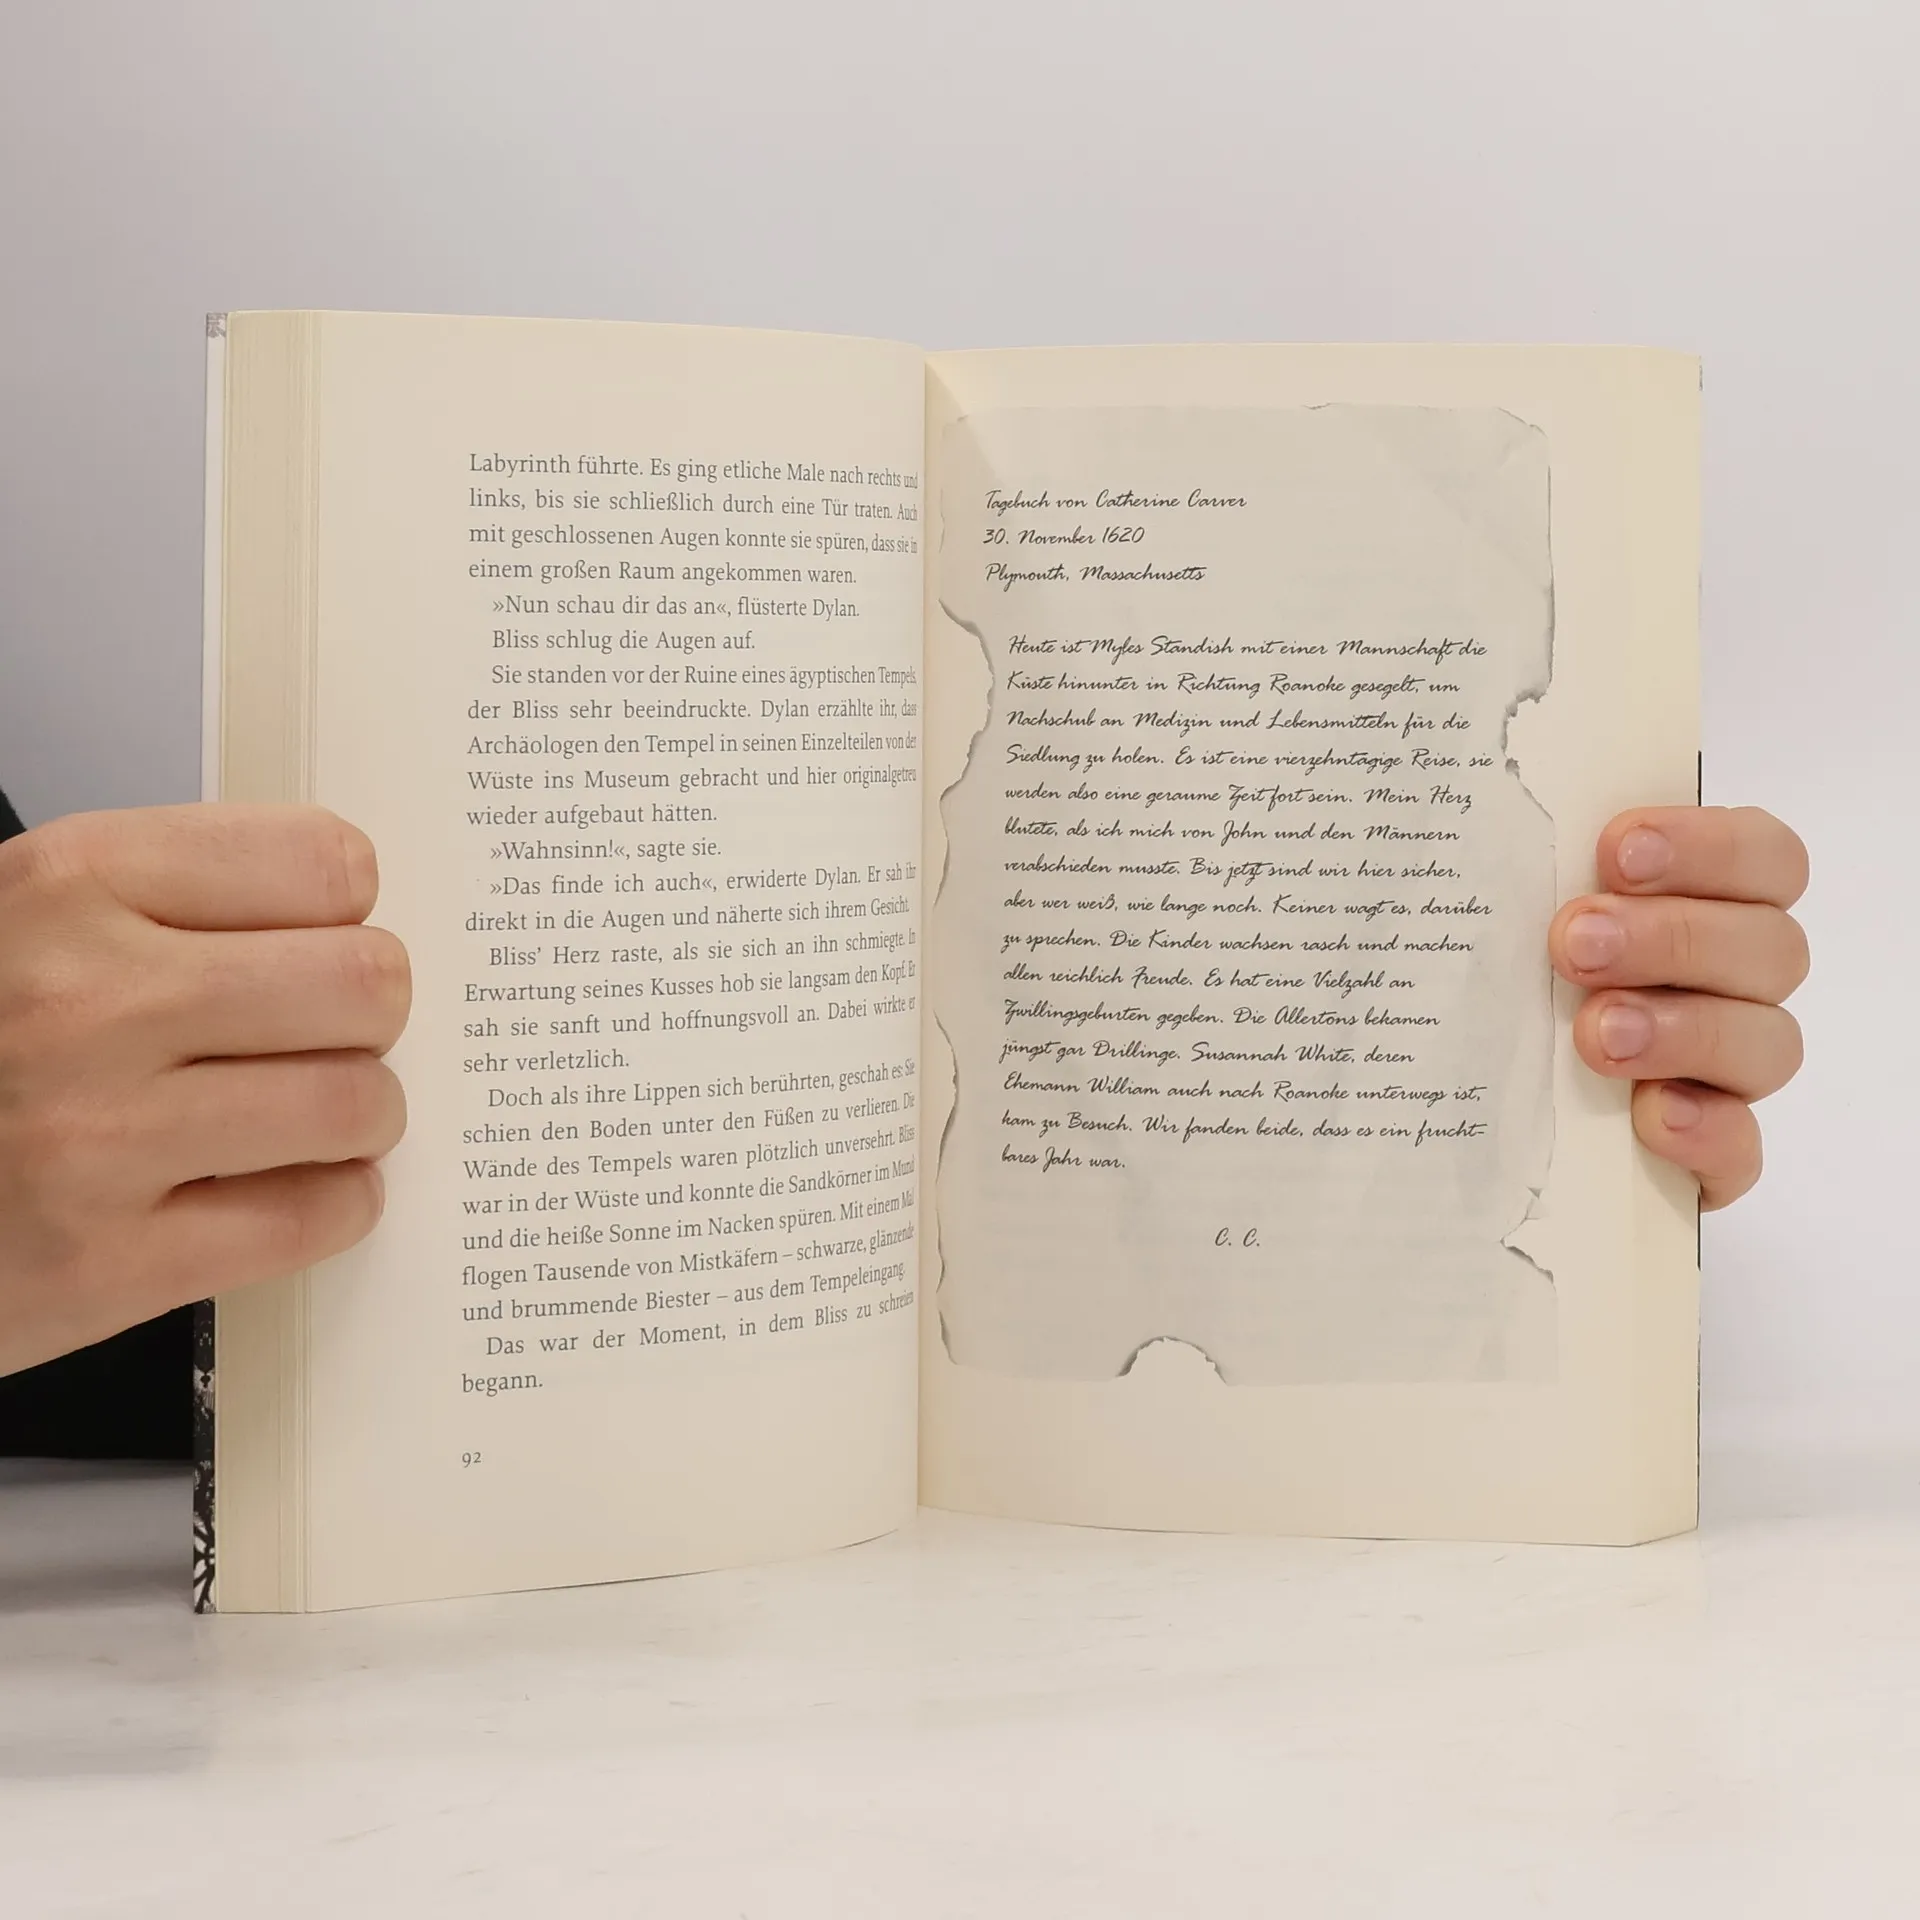 Labyrinth führte. Es ging etliche Male nach rechts und
links, bis sie schließlich durch eine Tür traten. Auch
mit geschlossenen Augen konnte sie spüren, dass sie in
einem großen Raum angekommen waren.
»Nun schau dir das an«, flüsterte Dylan.
Bliss schlug die Augen auf.
Sie standen vor der Ruine eines ägyptischen Tempels,
der Bliss sehr beeindruckte. Dylan erzählte ihr, dass
Archäologen den Tempel in seinen Einzelteilen von der
Wüste ins Museum gebracht und hier originalgetreu
wieder aufgebaut hätten.
»Wahnsinn!«, sagte sie.
»Das finde ich auch«, erwiderte Dylan. Er sah ihr
direkt in die Augen und näherte sich ihrem Gesicht.
Bliss' Herz raste, als sie sich an ihn schmiegte. In
Erwartung seines Kusses hob sie langsam den Kopf. Er
sah sie sanft und hoffnungsvoll an. Dabei wirkte er
sehr verletzlich.
Doch als ihre Lippen sich berührten, geschah es: Sie
schien den Boden unter den Füßen zu verlieren. Die
Wände des Tempels waren plötzlich unversehrt. Bliss
war in der Wüste und konnte die Sandkörner im Mund
und die heiße Sonne im Nacken spüren. Mit einem Mal
flogen Tausende von Mistkäfern – schwarze, glänzende
und brummende Biester – aus dem Tempeleingang.
Das war der Moment, in dem Bliss zu schreien
begann.
92
Tagebuch von Catherine Carver
30. November 1620
Plymouth, Massachusetts
Heute ist Myles Standish mit einer Mannschaft die
Küste hinunter in Richtung Roanoke gesegelt, um
Nachschub an Medizin und Lebensmitteln für die
Siedlung zu holen. Es ist eine vierzehntägige Reise, sie
werden also eine geraume Zeit fort sein. Mein Herz
blutete, als ich mich von John und den Männern
verabschieden musste. Bis jetzt sind wir hier sicher,
aber wer weiß, wie lange noch. Keiner wagt es, darüber
zu sprechen. Die Kinder wachsen rasch und machen
allen reichlich Freude. Es hat eine Vielzahl an
Zwillingsgeburten gegeben. Die Allertons bekamen
jüngst gar Drillinge. Susannah White, deren
Ehemann William auch nach Roanoke unterwegs ist,
kam zu Besuch. Wir fanden beide, dass es ein frucht-
bares Jahr war.
C. C.